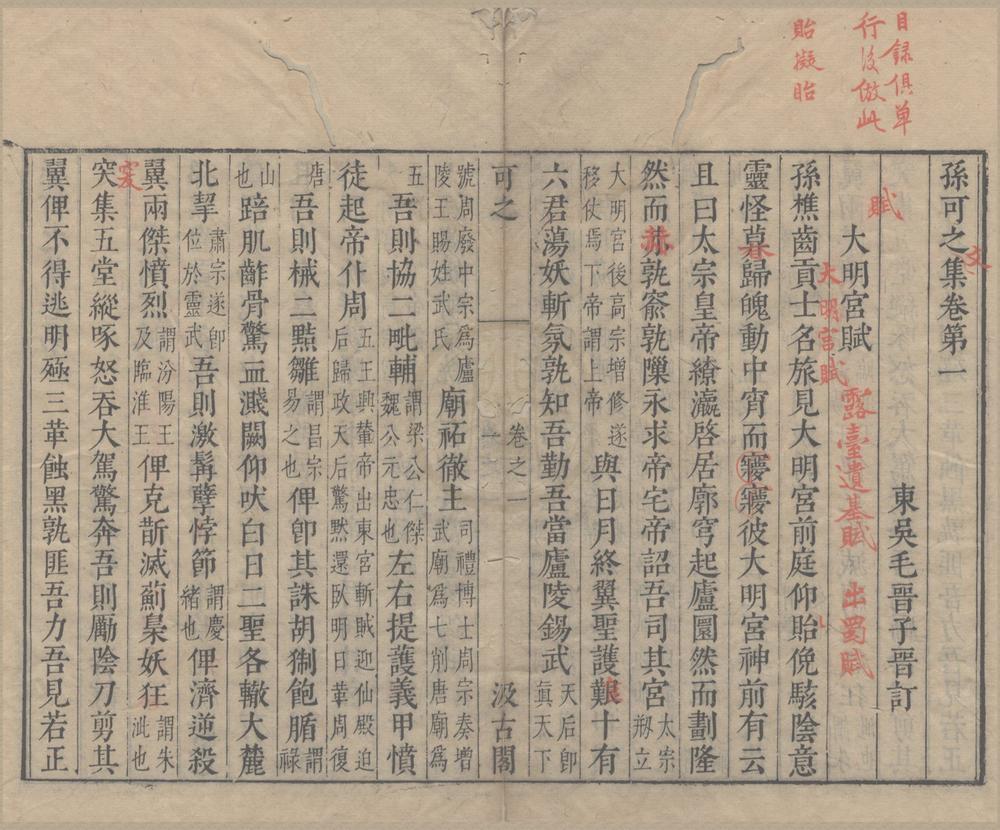 目録俱單
行後倣此
貽擬眙
孫可之集卷第一
文
東吳毛晉子晉訂
賦
大明宮賦
大明宮賦 露臺遺基賦 出蜀賦
孫樵齒貢士名旅見大明宮前庭仰貽俛駭陰意
靈怪暮歸魄動中宵而寱寱彼大明宮神前有云
且曰太宗皇帝繚瀛啓居廓穹起廬圜然而劃隆
然而赫孰窳孰隟永求帝宅帝詔吾司其宮太宗剏立
大明宮後高宗增修遂移仗焉下帝謂上帝與日月終翼聖護艱十有
六君蕩妖斬氛孰知吾勤吾當廬陵錫武天后卽眞天下
可之 卷之一 一 汲古閣
號周廢中宗爲廬陵王賜姓武氏廟祏徹主司禮博士周宗奏增武廟爲七削唐廟爲
五吾則協二毗輔謂梁公仁傑魏公元忠也左右提護義甲憤
徒起帝仆周五王興輦帝出東宮斬賊迎仙殿迫后歸政天后驚黙還臥明日華周復
唐吾則械二㸃雛謂昌宗易之也俾卽其誅胡猘飽腯謂祿
山也踣肌齚骨驚血濺闕仰吠白日二聖各轍大麓
北挐肅宗遂卽位於靈武吾則激髯孽悖節謂慶緖也俾濟逆殺
翼兩傑憤烈謂汾陽王及臨淮王俾克斮滅薊梟妖狂謂朱泚也
突集五堂縱啄怒吞大駕驚奔吾則勵陰刀剪其
翼俾不得逃明殛三革蝕黑孰匪吾力吾見若正